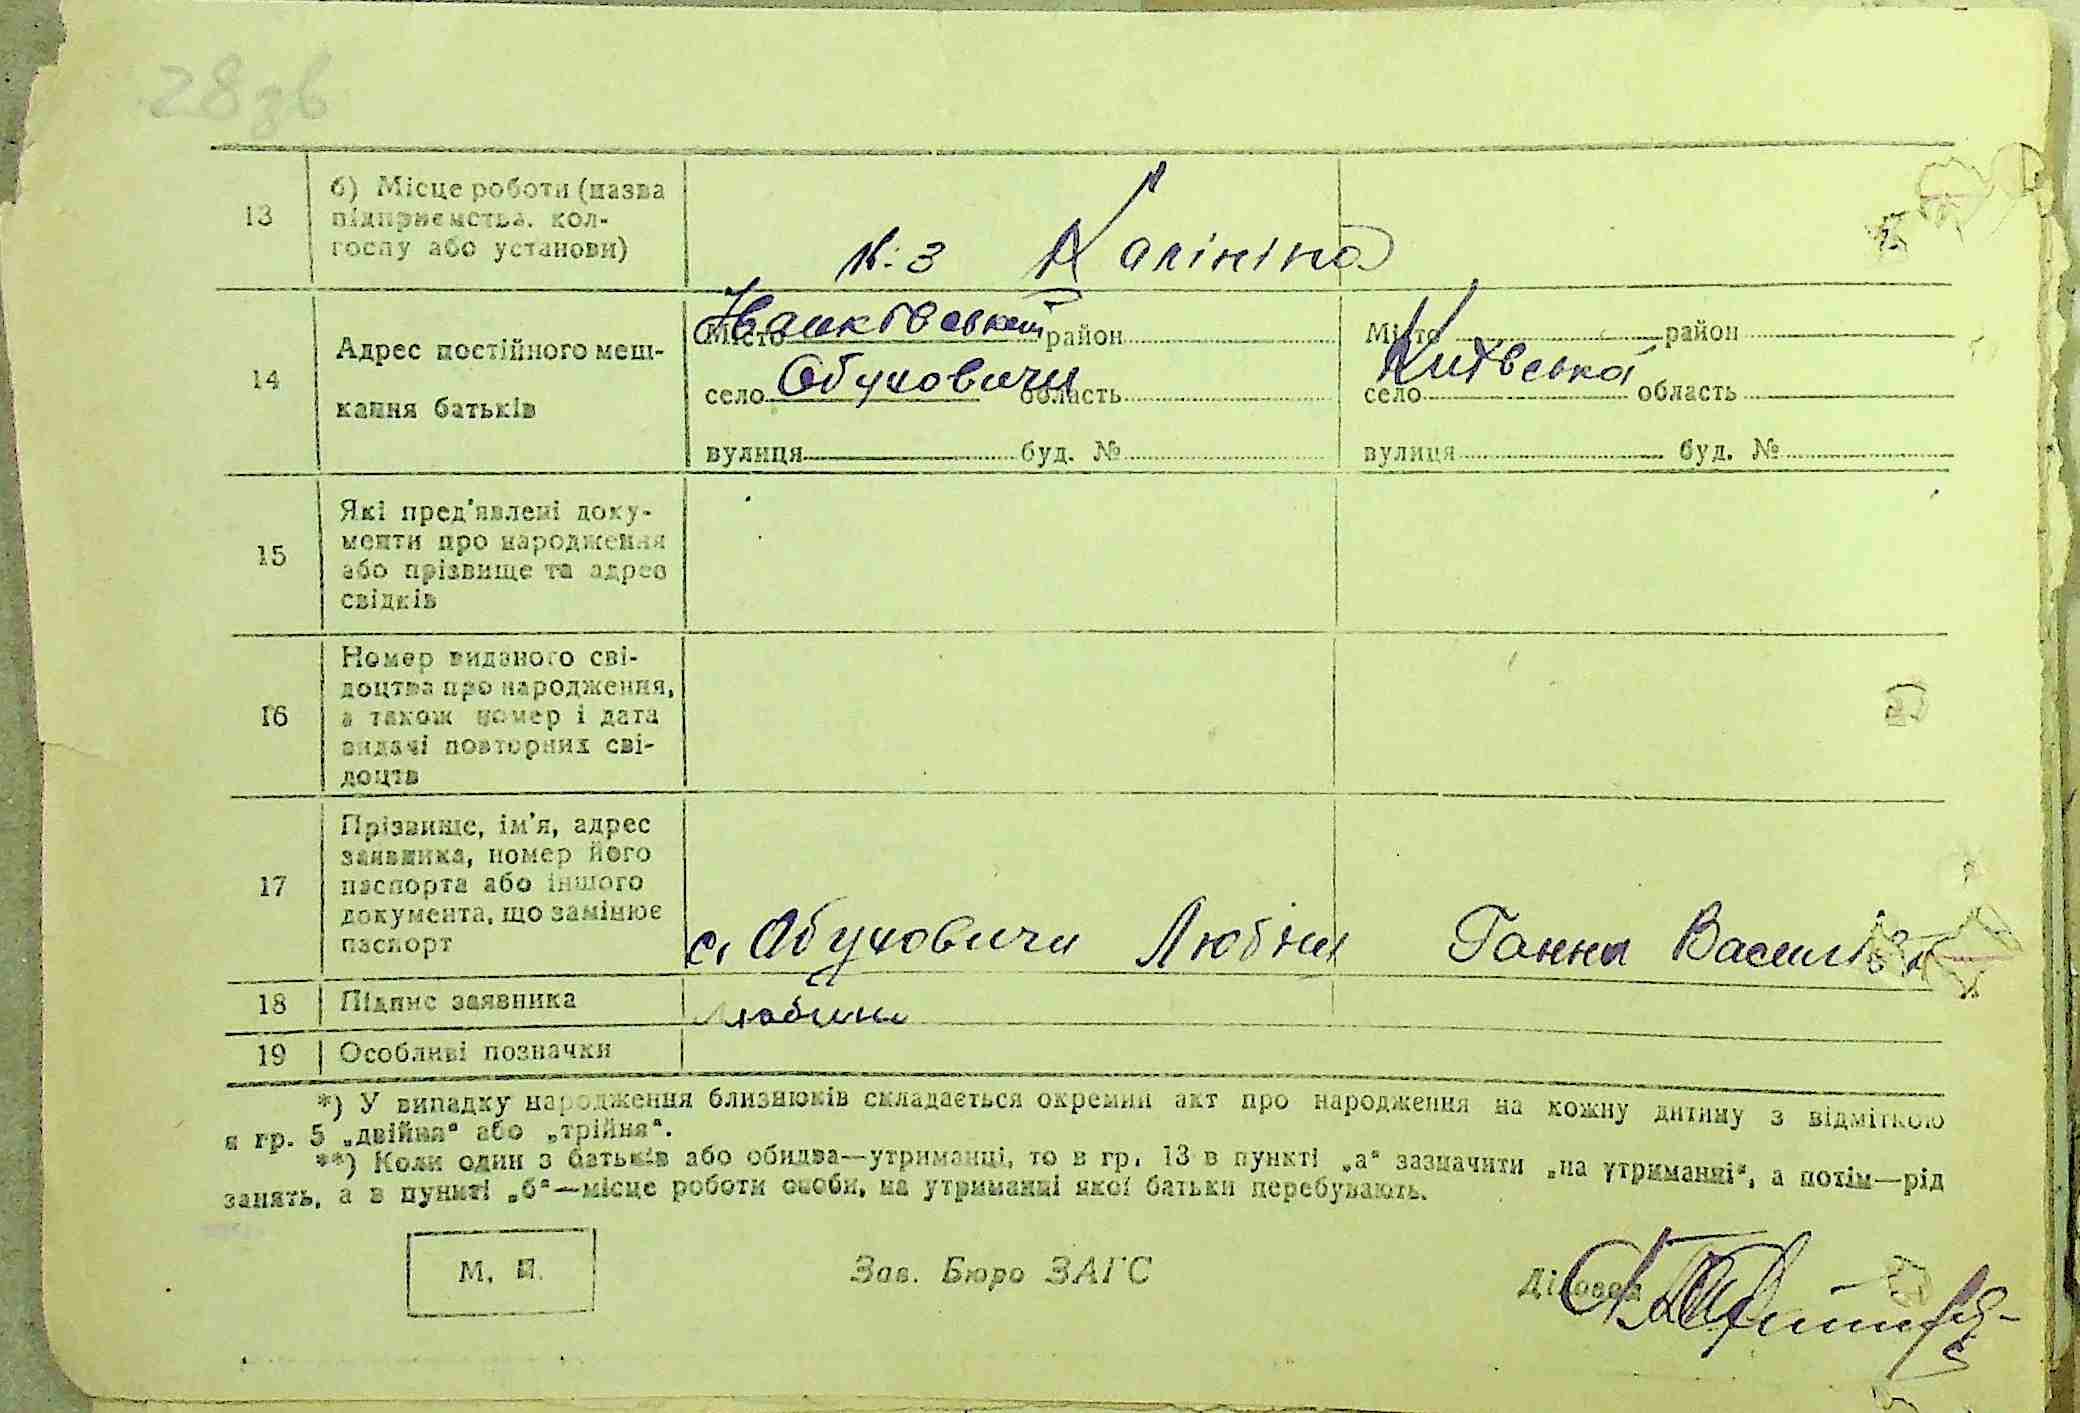 28зв
13
б) Місце роботи (назва
підприємства, кол-
госпу або установи)
к-з Калініна
14
Адрес постійного меш-
кання батьків
Іванківський
Місто район
село Обуховичи область
вулиця буд. №
Місто район
Київська
село область
вулиця буд. №
15
Які пред'явлені доку-
менти про народження
або прізвище та адрес
свідків
16
Номер виданого сві-
доцтва про народження,
а також номер і дата
видачі повторних сві-
доцтв
17
Прізвище, ім'я, адрес
заявника, номер його
паспорта або іншого
документа, що замінює
паспорт
с. Обуховичи Любин Ганна
18
Підпис заявника
19
Особливі позначки
*) У випадку народження близнюків складається окремий акт про народження на кожну дитину з відміткою
в гр. 5 „двійня“ або „трійня“.
**) Коли один з батьків або обидва—утриманці, то в гр. 13 в пункті „а“ зазначити „на утриманні“, а потім—рід
занять, а в пункті „б“—місце роботи особи, на утриманні якої батьки перебувають.
М. П.
Зав. Бюро ЗАГС
Діловод